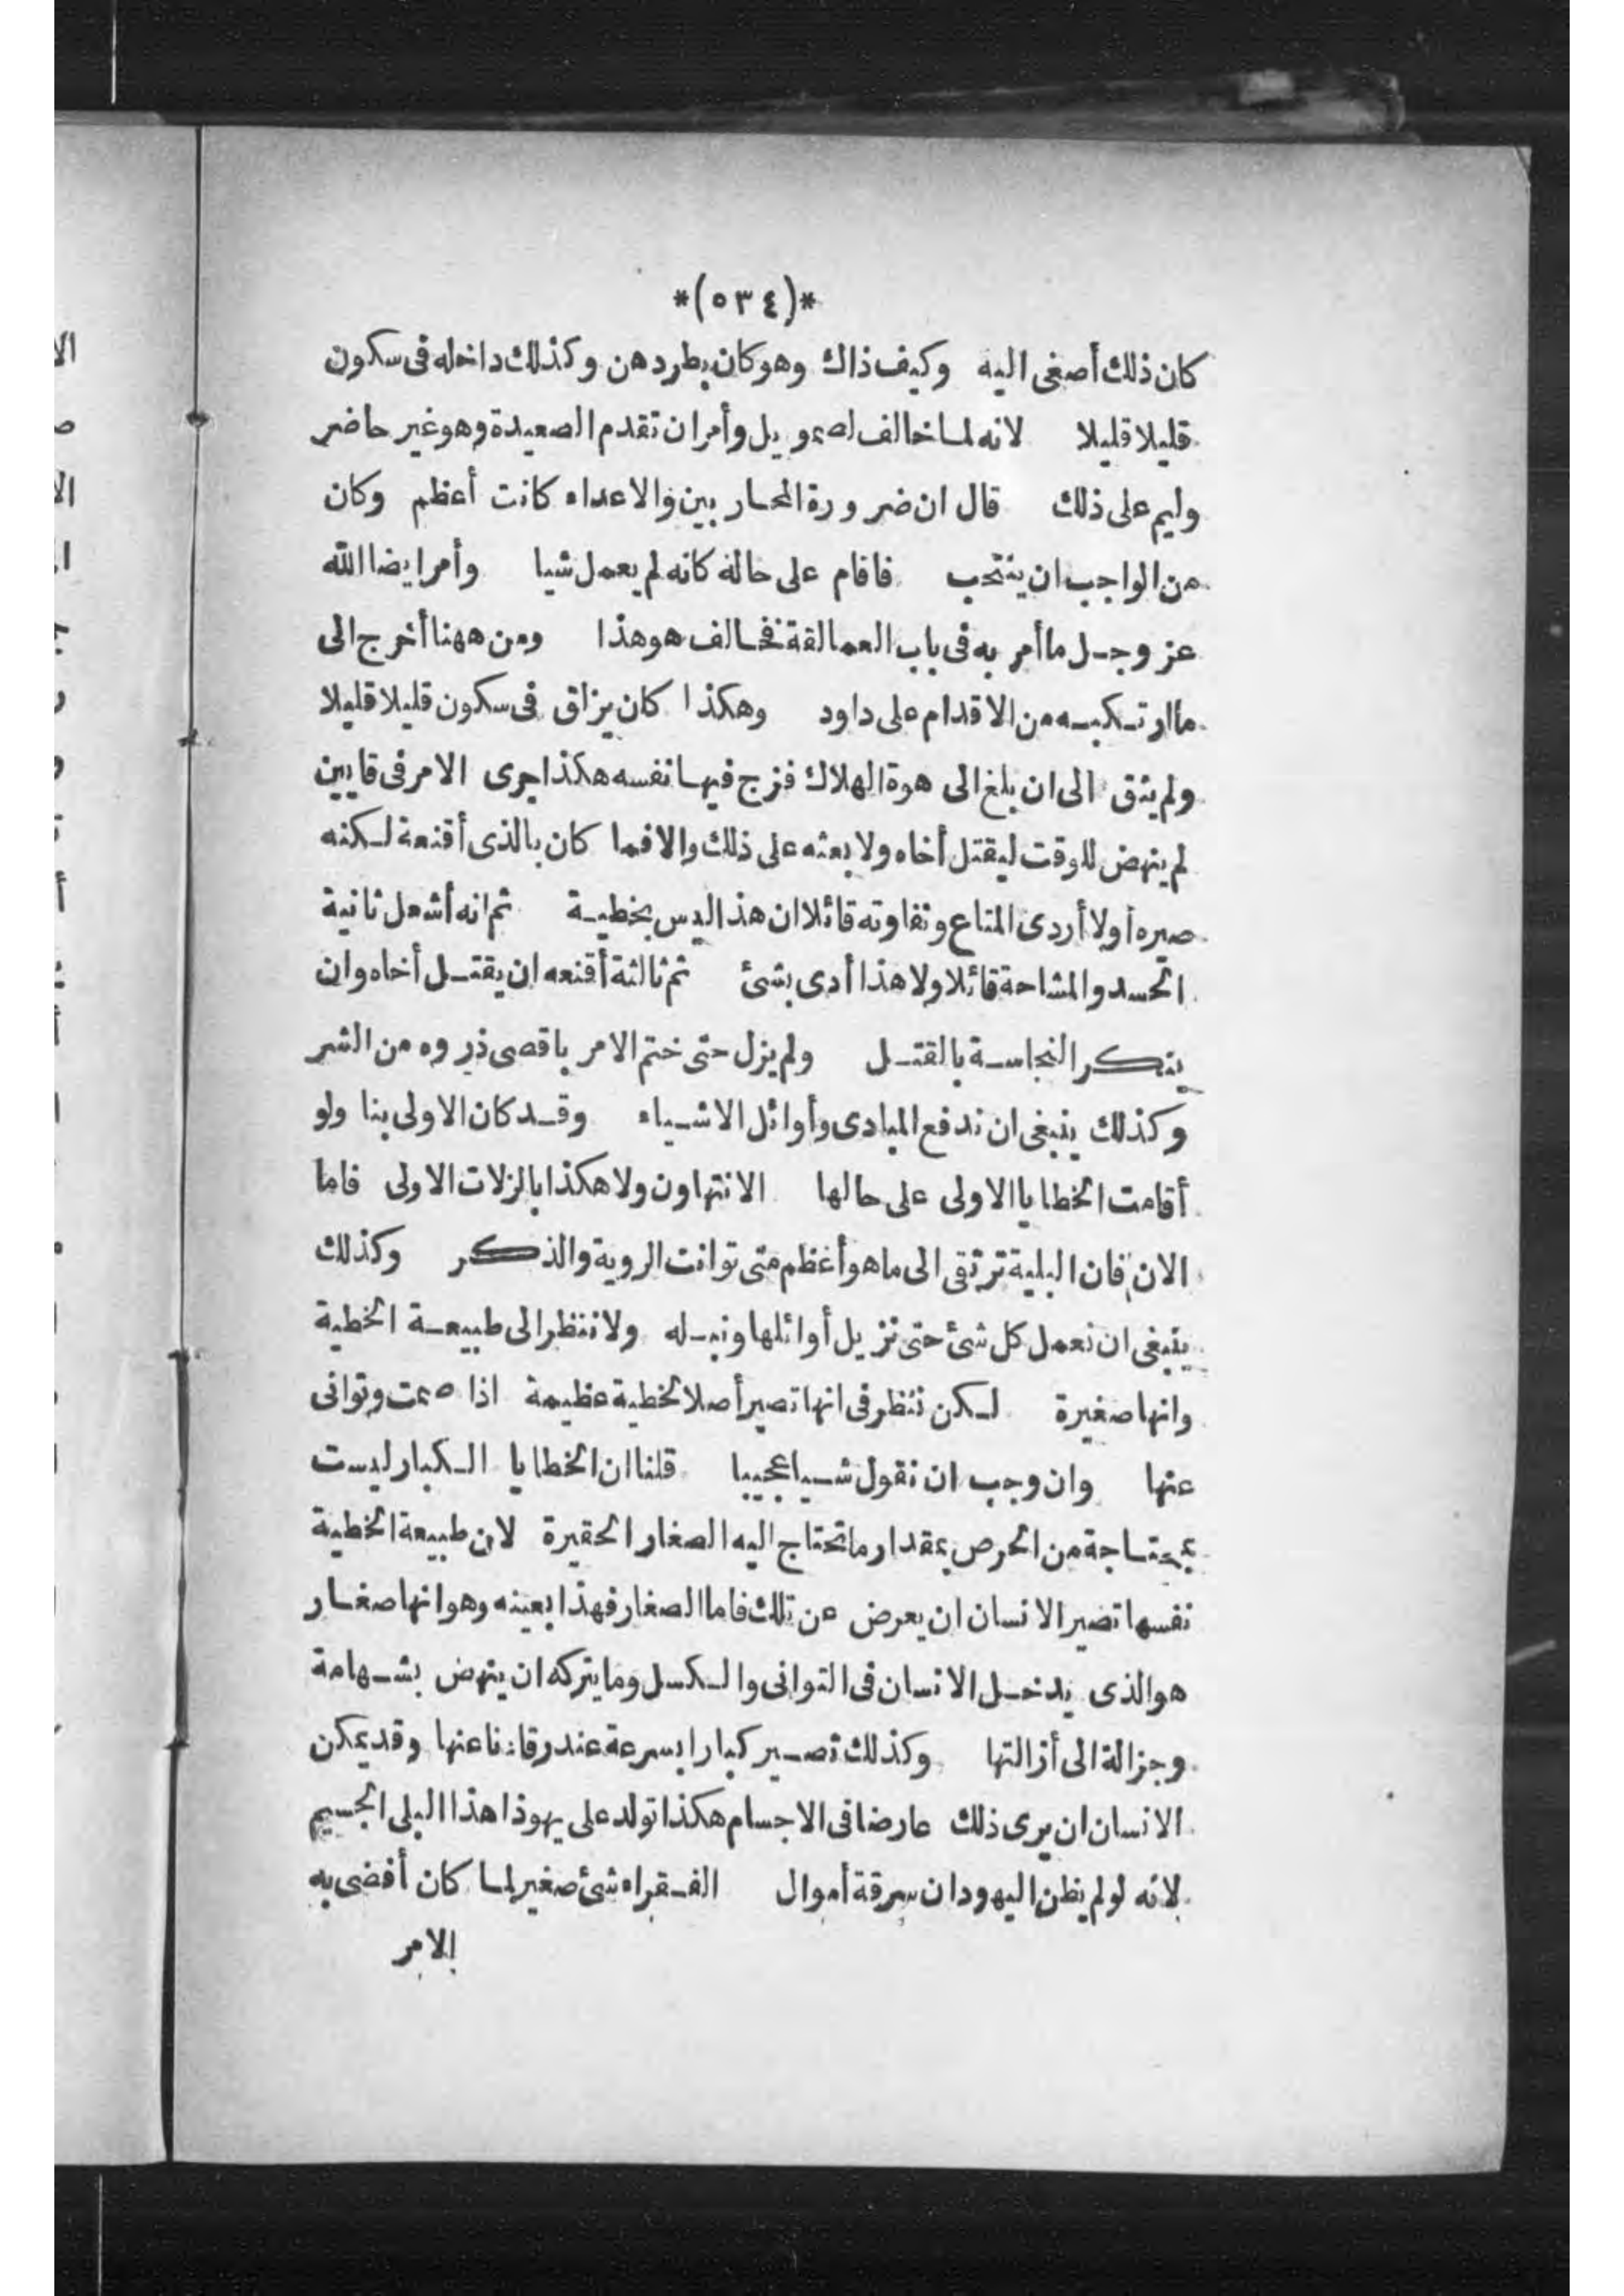 *(٥٣٤)*
كان ذلك أصغى اليه وكيف ذاك وهو كان يطردهن وكذلك داخله فى سكون
قليلا قليلا لانه لما خالف لصمويل وأمر ان تقدم الصعيدة وهو غير حاضر
وليم على ذلك قال ان ضرورة المحاربين والاعداء كانت أعظم وكان
من الواجب ان ينتحب فاقام على حالة كانه لم يعمل شيا وأمر ايضا الله
عز وجل ما أمر به فى باب العمالقة فخالف هو هذا ومن ههنا أخرج الى
ما ارتكبه من الاقدام على داود وهكذا كان يزلق فى سكون قليلا قليلا
ولم يثق الى ان بلغ الى هوة الهلاك فزج فيها نفسه هكذا جرى الامر فى قايين
لم ينهض للوقت ليقتل أخاه ولا بعثه على ذلك والا فما كان بالذى أقنعة لكنه
صيره أولا أردى المتاع وتفاوته قائلا ان هذا ليس بخطية ثم انه أشعل ثانية
الحسد والمشاحة قائلا ولا هذا أدى بشئ ثم ثالثة أقنعه ان يقتل أخاه وان
ينكر النجاسة بالقتل ولم يزل حتى ختم الامر باقصى ذروه من الشر
وكذلك ينبغى ان ندفع المبادى وأوائل الاشياء وقد كان الاولى بنا ولو
أقامت الخطايا الاولى على حالها الانتهاون ولا هكذا بالزلات الاولى فاما
الان فان البلية ترتقى الى ما هو أعظم متى توانت الروية والذكر وكذلك
ينبغى ان نعمل كل شئ حتى نزيل أوائلها ونبله ولا ننظر الى طبيعة الخطية
وانها صغيرة لكن ننظر فى انها تصير أصلا لخطية عظيمة اذا صمت وتوانى
عنها وان وجب ان نقول شيا عجيبا قلنا ان الخطايا الكبار ليست
بمحتاجة من الحرص بمقدار ما تحتاج اليه الصغار الحقيرة لان طبيعة الخطية
نفسها تصير الانسان ان يعرض عن تلك فاما الصغار فهذا بعينه وهو انها صغار
هو الذى يدخل الانسان فى التوانى والكسل وما يتركه ان ينهض بشهامة
وجزالة الى أزالتها وكذلك تصير كبارا بسرعة عند رقادنا عنها وقد يمكن
الانسان ان يرى ذلك عارضا فى الاجسام هكذا تولد على يهوذا هذا البلى الجسيم
لانه لو لم يظن اليهود ان سرقة أموال الفقراء شئ صغير لما كان أفضى به
الامر